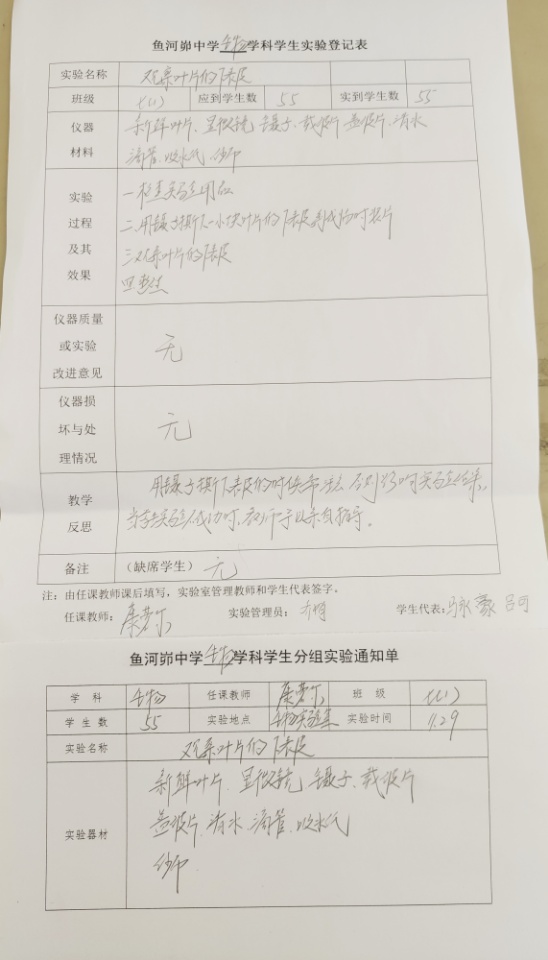 鱼河峁中学生物学科学生实验登记表
实验名称 观察叶片的下表皮
班级 七(1) 应到学生数 55 实到学生数 55
仪器材料 新鲜叶片、显微镜 镊子、载玻片 盖玻片、清水
滴管、吸水纸、纱布
实验过程及其效果 一检查实验室用品
二用镊子撕下一小块叶片的下表皮制成临时装片
三观察叶片的下表皮
四总结
仪器质量或实验改进意见 无
仪器损坏与处理情况 无
教学反思 用镊子撕下表皮的时候
备注 (缺席学生) 无
注：由任课教师课后填写，实验室管理教师和学生代表签字。
任课教师： 实验管理员： 学生代表：
鱼河峁中学生物学科学生分组实验通知单
学科 生物 任课教师 班级 七(1)
学生数 55 实验地点 生物实验室 实验时间 11.29
实验名称 观察叶片的下表皮
实验器材 新鲜叶片、显微镜 镊子、载玻片
盖玻片、清水、滴管、吸水纸
纱布